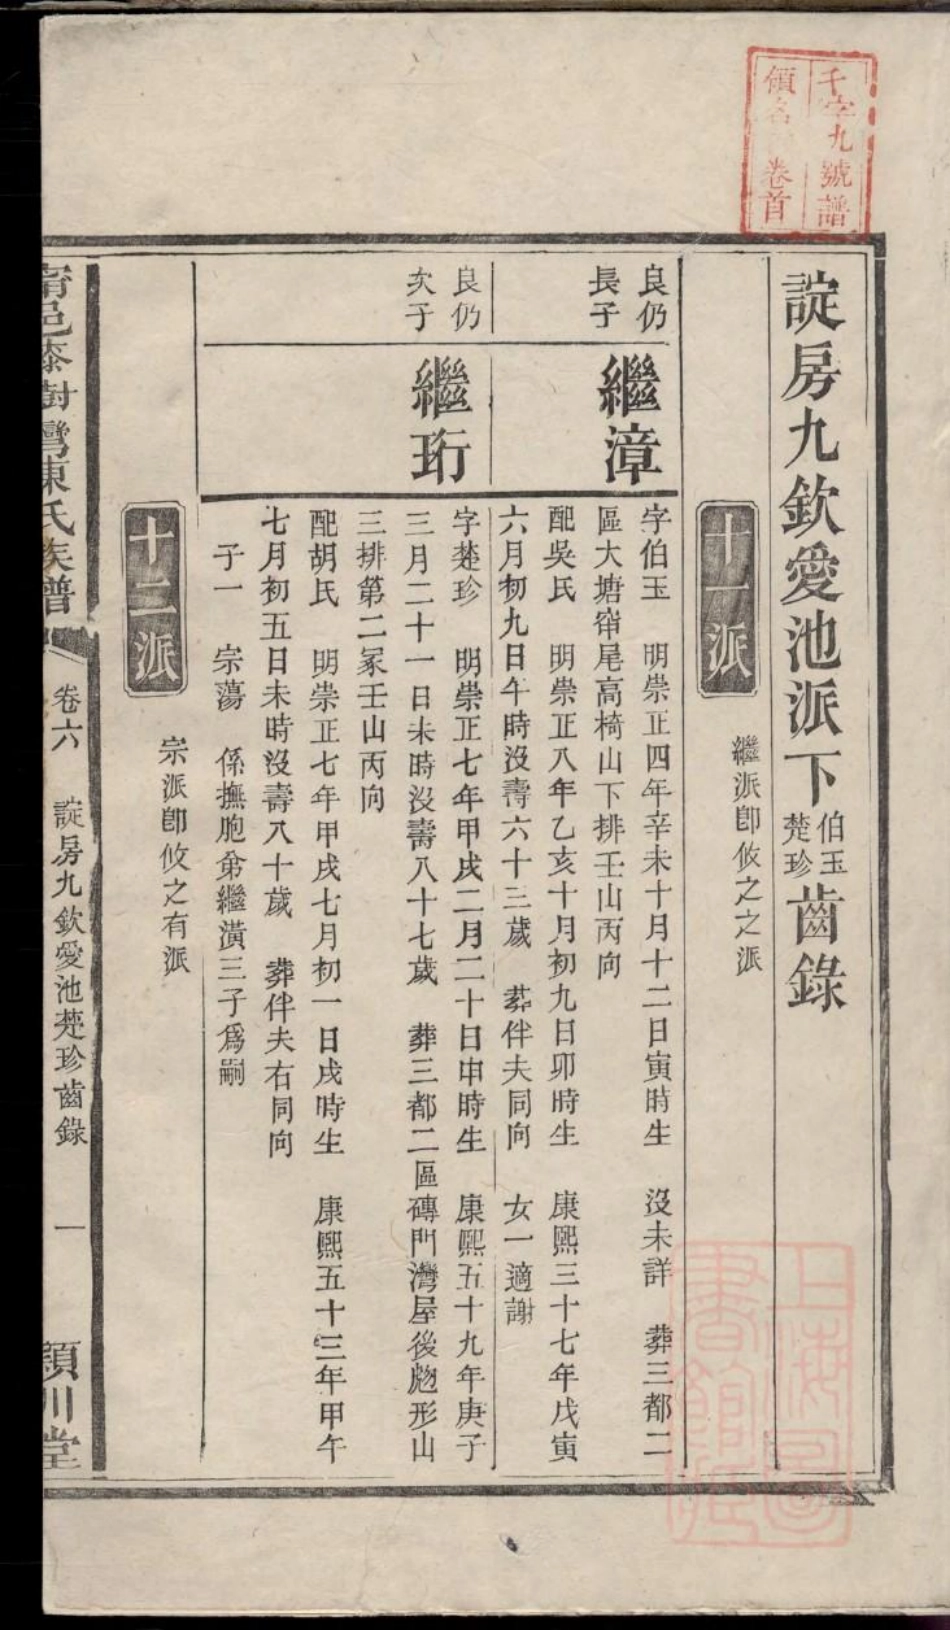 千字九號譜
領名 卷首
諚房九欽愛池派下伯玉楚珍齒錄
十一派 繼派卽攸之之派
良仍長子
繼漳
字伯玉 明崇正四年辛未十月十二日寅時生 沒未詳 葬三都二
區大塘窩尾高椅山下排壬山丙向
配吳氏 明崇正八年乙亥十月初九日卯時生 康熙三十七年戊寅
六月初九日午時沒壽六十三歲 葬伴夫同向 女一適謝
良仍次子
繼珩
字楚珍 明崇正七年甲戌二月二十日申時生 康熙五十九年庚子
三月二十一日未時沒壽八十七歲 葬三都二區磚門灣屋後虎形山
三排第二冢壬山丙向
配胡氏 明崇正七年甲戌七月初一日戌時生 康熙五十三年甲午
七月初五日未時沒壽八十歲 葬伴夫右同向
子一 宗蕩 係撫胞弟繼潢三子爲嗣
十二派 宗派卽攸之有派
甯邑漆樹灣陳氏族譜 卷六 諚房九欽愛池楚珍齒錄 一 潁川堂
上海圖書館藏